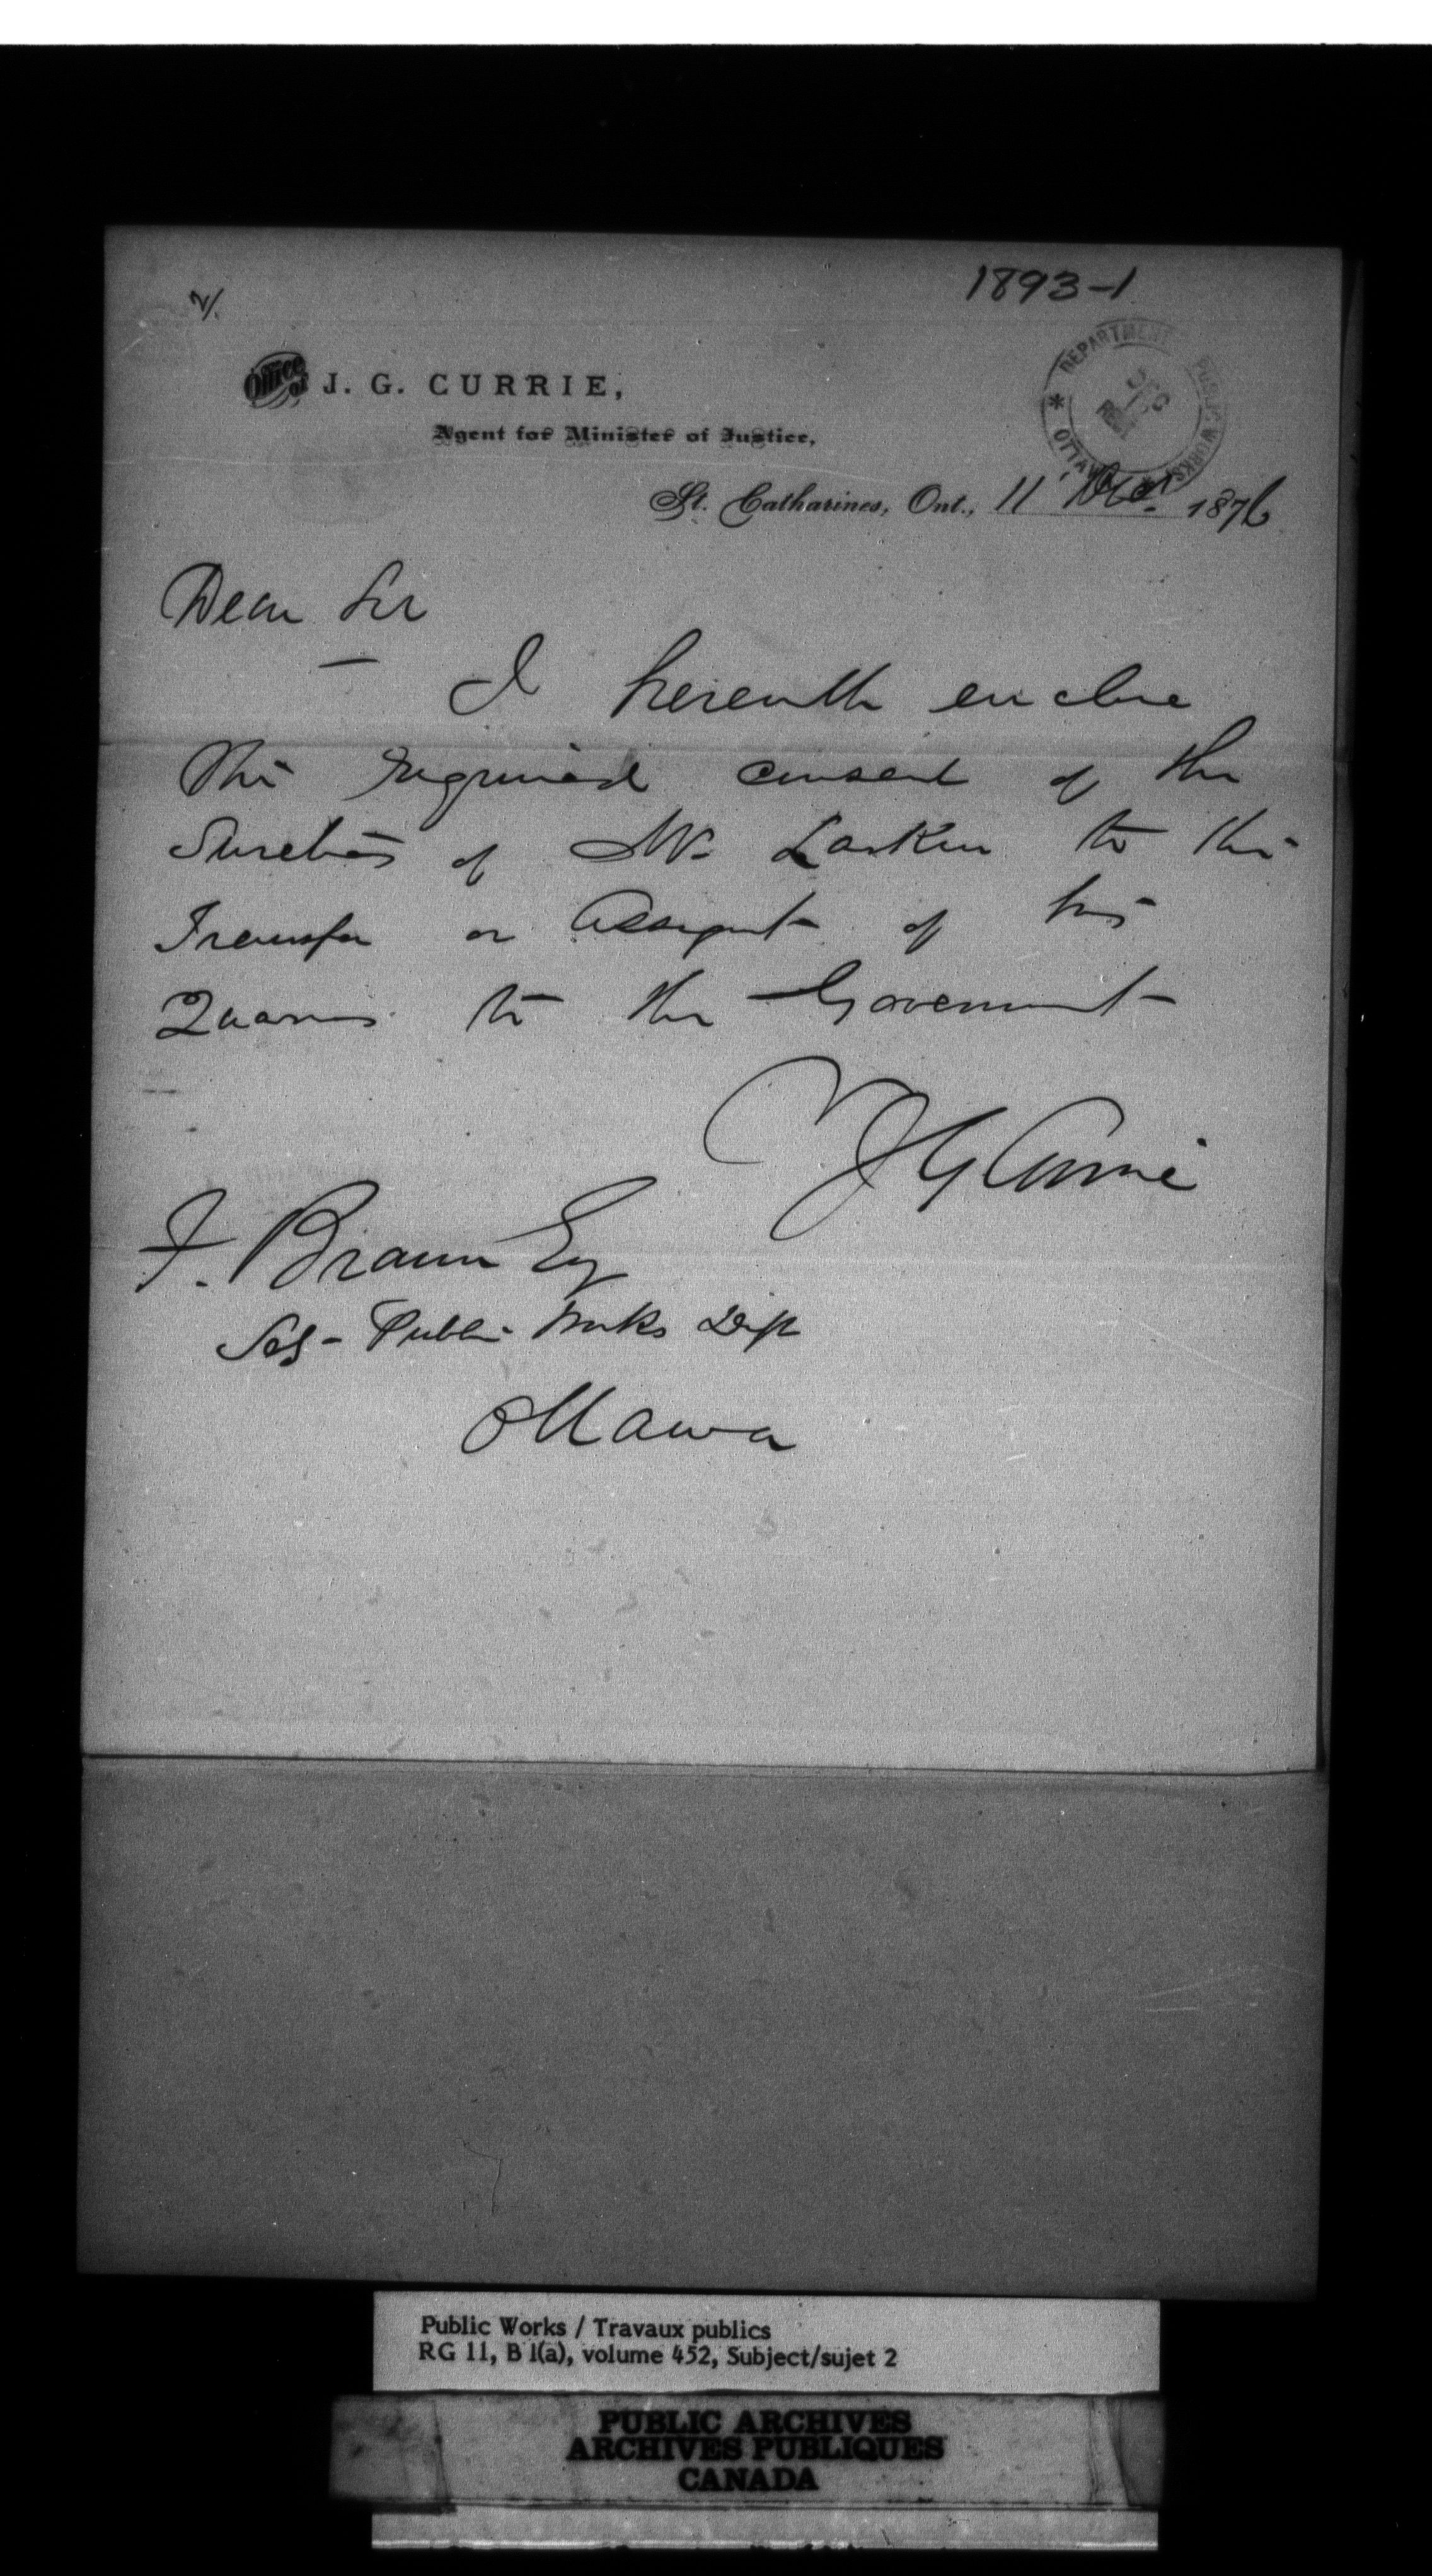 2/.
1893-1
Office of J. G. CURRIE,
Agent for Minister of Justice,
DEPARTMENT PUBLIC WORKS
* OTTAWA
DEC
St. Catharines, Ont., 11 Dec. 1876
Dear Sir
I herewith enclose
the required consent of the
Sureties of Mr. Larkin to the
Transfer or Assigmt of his
to the Government
J G Currie
F. Braun Esq
Sec - Public Works Dept
Ottawa
Public Works / Travaux publics
RG 11, B 1(a), volume 452, Subject/sujet 2
PUBLIC ARCHIVES
ARCHIVES PUBLIQUES
CANADA